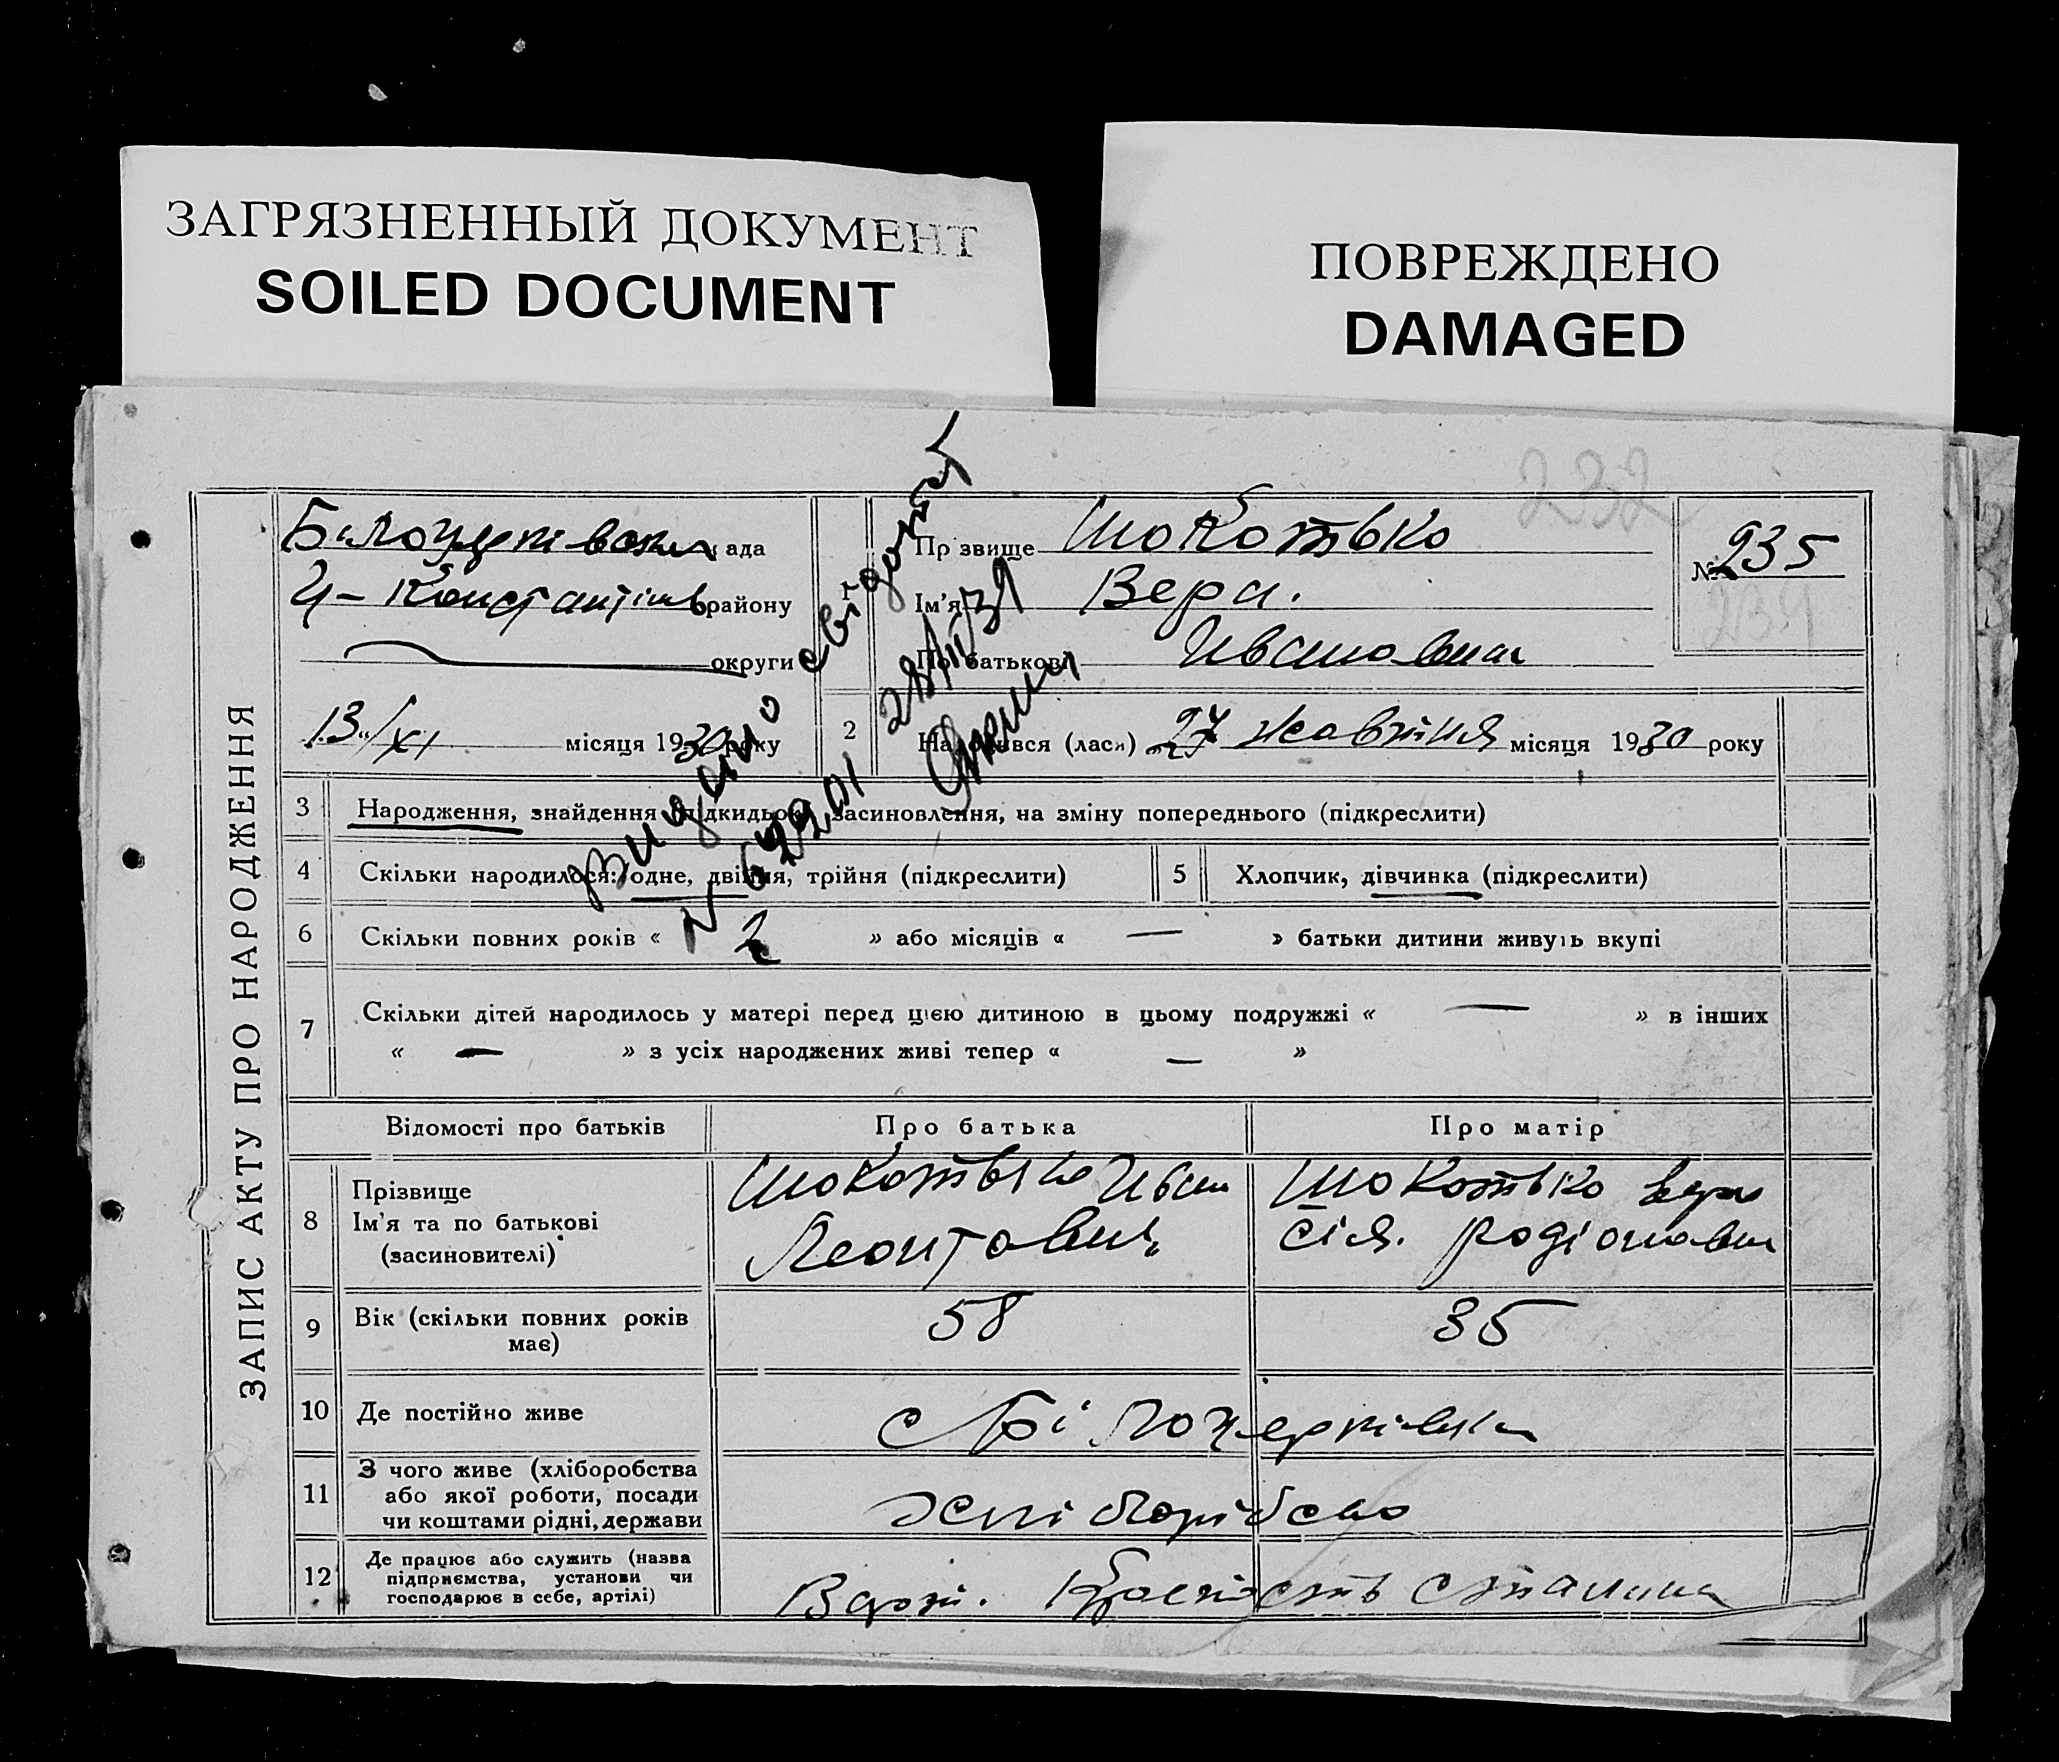 ЗАГРЯЗНЕННЫЙ ДОКУМЕНТ
SOILED DOCUMENT
ПОВРЕЖДЕНО
DAMAGED
232
ЗАПИС АКТУ ПРО НАРОДЖЕННЯ
ада
району
округи
13/XI місяця 1930 року
1
Прізвище Шокотько
Ім'я Вера.
По батькові Ивановна
№ 235
2
Народився (лася) 27 жовтня місяця 1930 року
Видано
28/II 39
3 Народження, знайдення підкидьок, засиновлення, на зміну попереднього (підкреслити)
4 Скільки народилося: одне, двійня, трійня (підкреслити)
5 Хлопчик, дівчинка (підкреслити)
6 Скільки повних років « 2 » або місяців « — » батьки дитини живуть вкупі
7 Скільки дітей народилось у матері перед цією дитиною в цьому подружжі « — » в інших
« — » з усіх народжених живі тепер « — »
Відомості про батьків
Про батька
Про матір
8 Прізвище
Ім'я та по батькові
(засиновителі)
Шокотько Иван
Леонтович
Шокотько
Родіоновна
9 Вік (скільки повних років
має)
58
35
10 Де постійно живе
с Білоцерківка
11 З чого живе (хліборобства
або якої роботи, посади
чи коштами рідні, держави
хліборобство
12 Де працює або служить (назва
підприємства, установи чи
господарює в себе, артілі)
В арт. Крепость Сталина